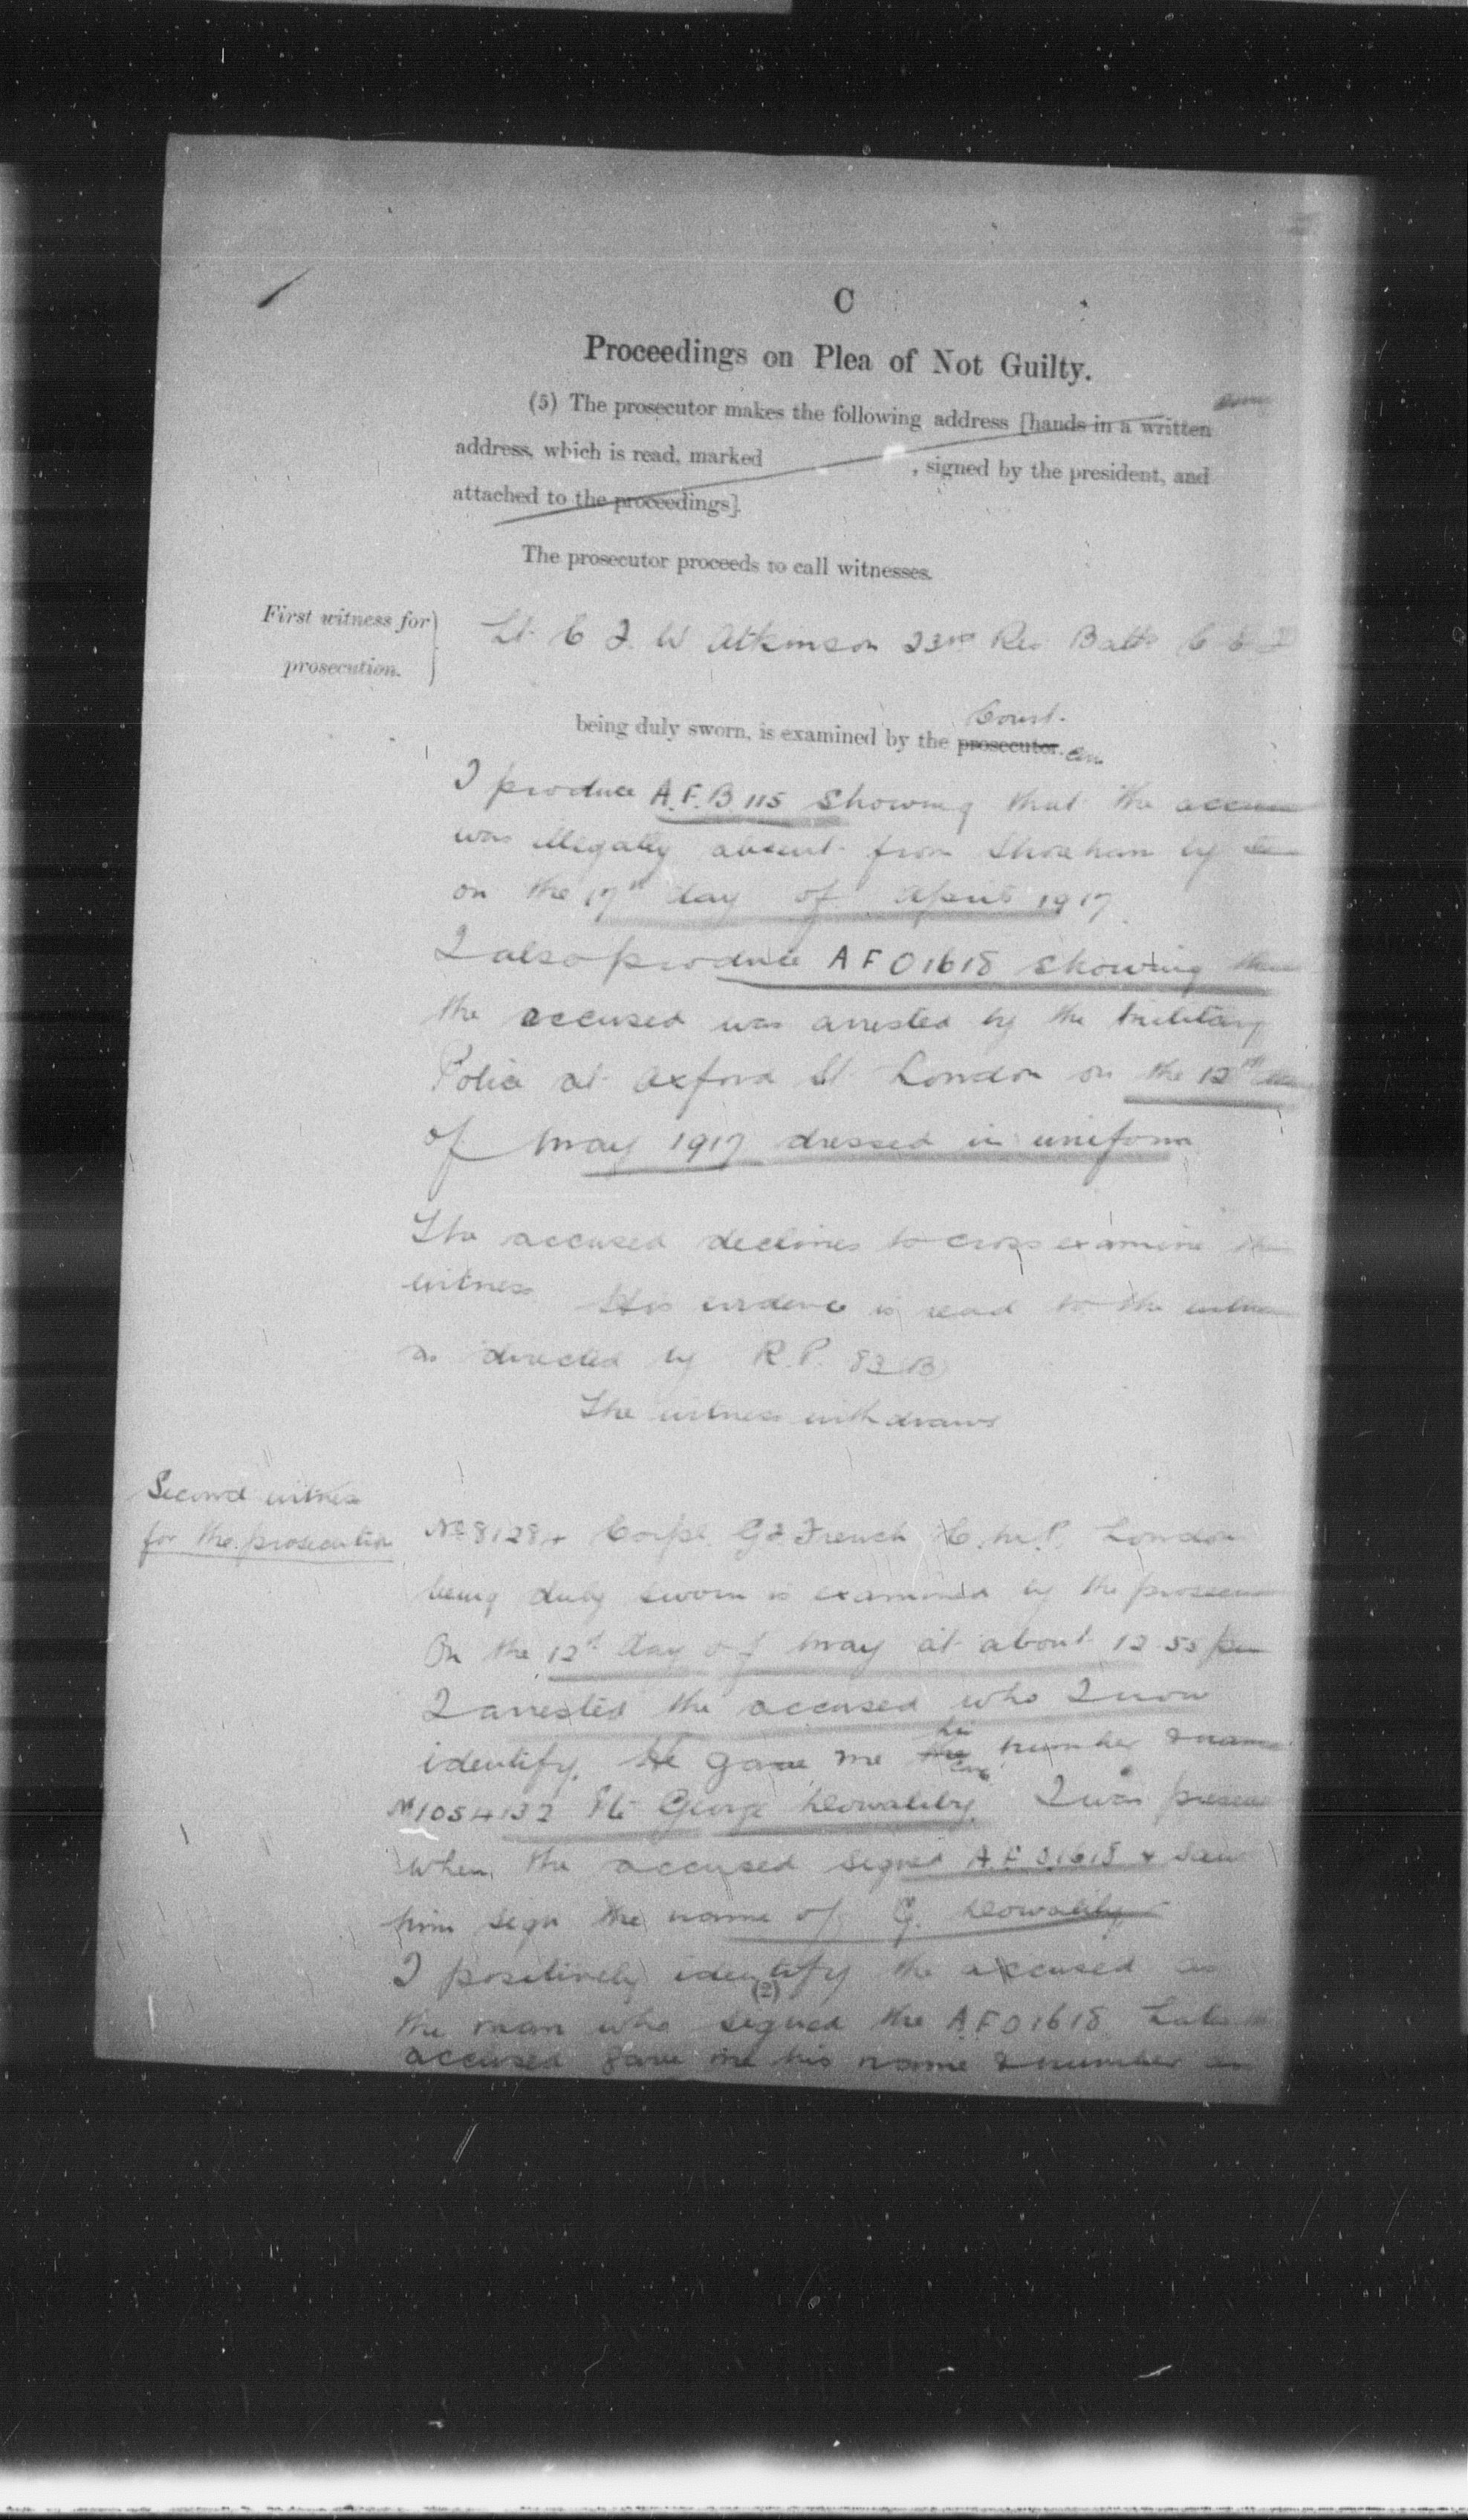 C
Proceedings on Plea of Not Guilty.
(5) The prosecutor makes the following address [hands in a written
address, which is read, marked , signed by the president, and
attached to the proceedings].
The prosecutor proceeds to call witnesses.
First witness for
prosecution.
Lt. C J. W Atkinson 23rd Res Battn C E F
Court.
being duly sworn, is examined by the prosecutor.
I produce A.F.B 115 showing that the
was illegally absent from Shoreham by
on the 17th day of April 1917.
I also produce A F O 1618 showing
the accused was arrested by the Military
Police at Oxford St London on the 12th
of May 1917 dressed in uniform
The accused declines to cross examine
witness His evidence is read to the
as directed by R.P. 83 B
The witness withdraws
Second witness
for the prosecution
No 8128 Corpl. French M.P. London
being duly sworn is examined by the
On the 12th day of May at about 12 55
I arrested the accused who I now
identify. He gave me the his number &
No 1054132 Pte George I was
when the accused signed A.F.O.1618 & saw
him sign the name of G.
I positively identify the accused as
(2)
the man who signed the A F O 1618
accused gave me his name & number